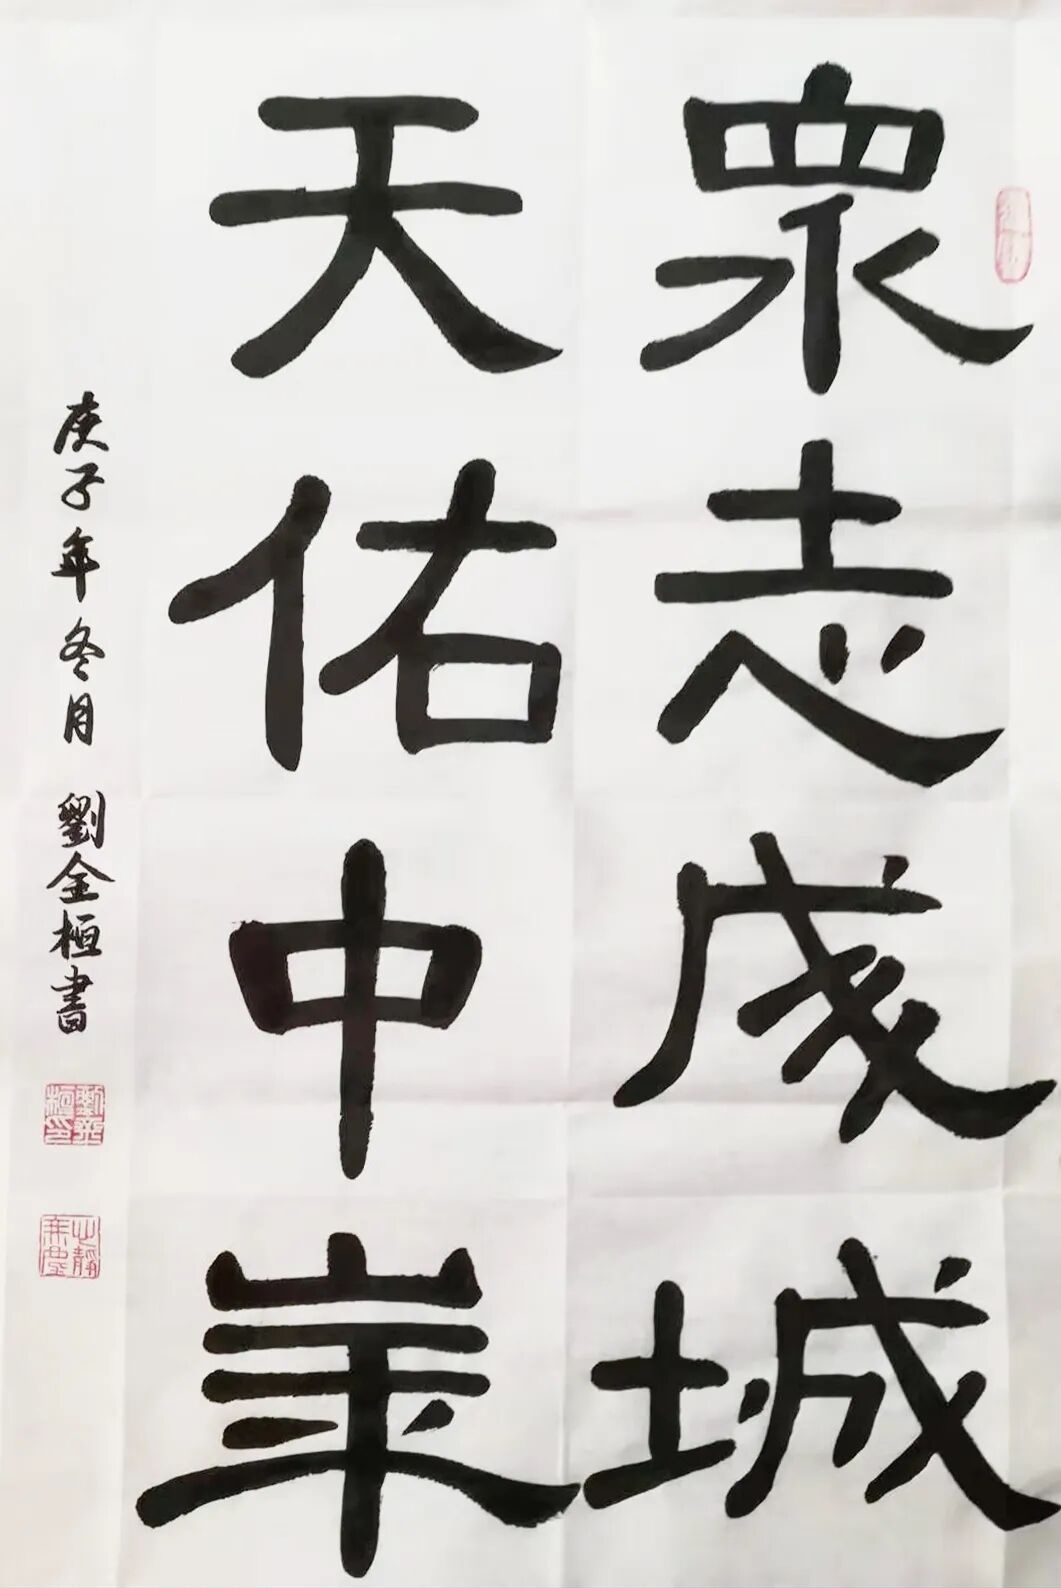 眾志成城
天佑中華
庚子年冬月 劉金桓書